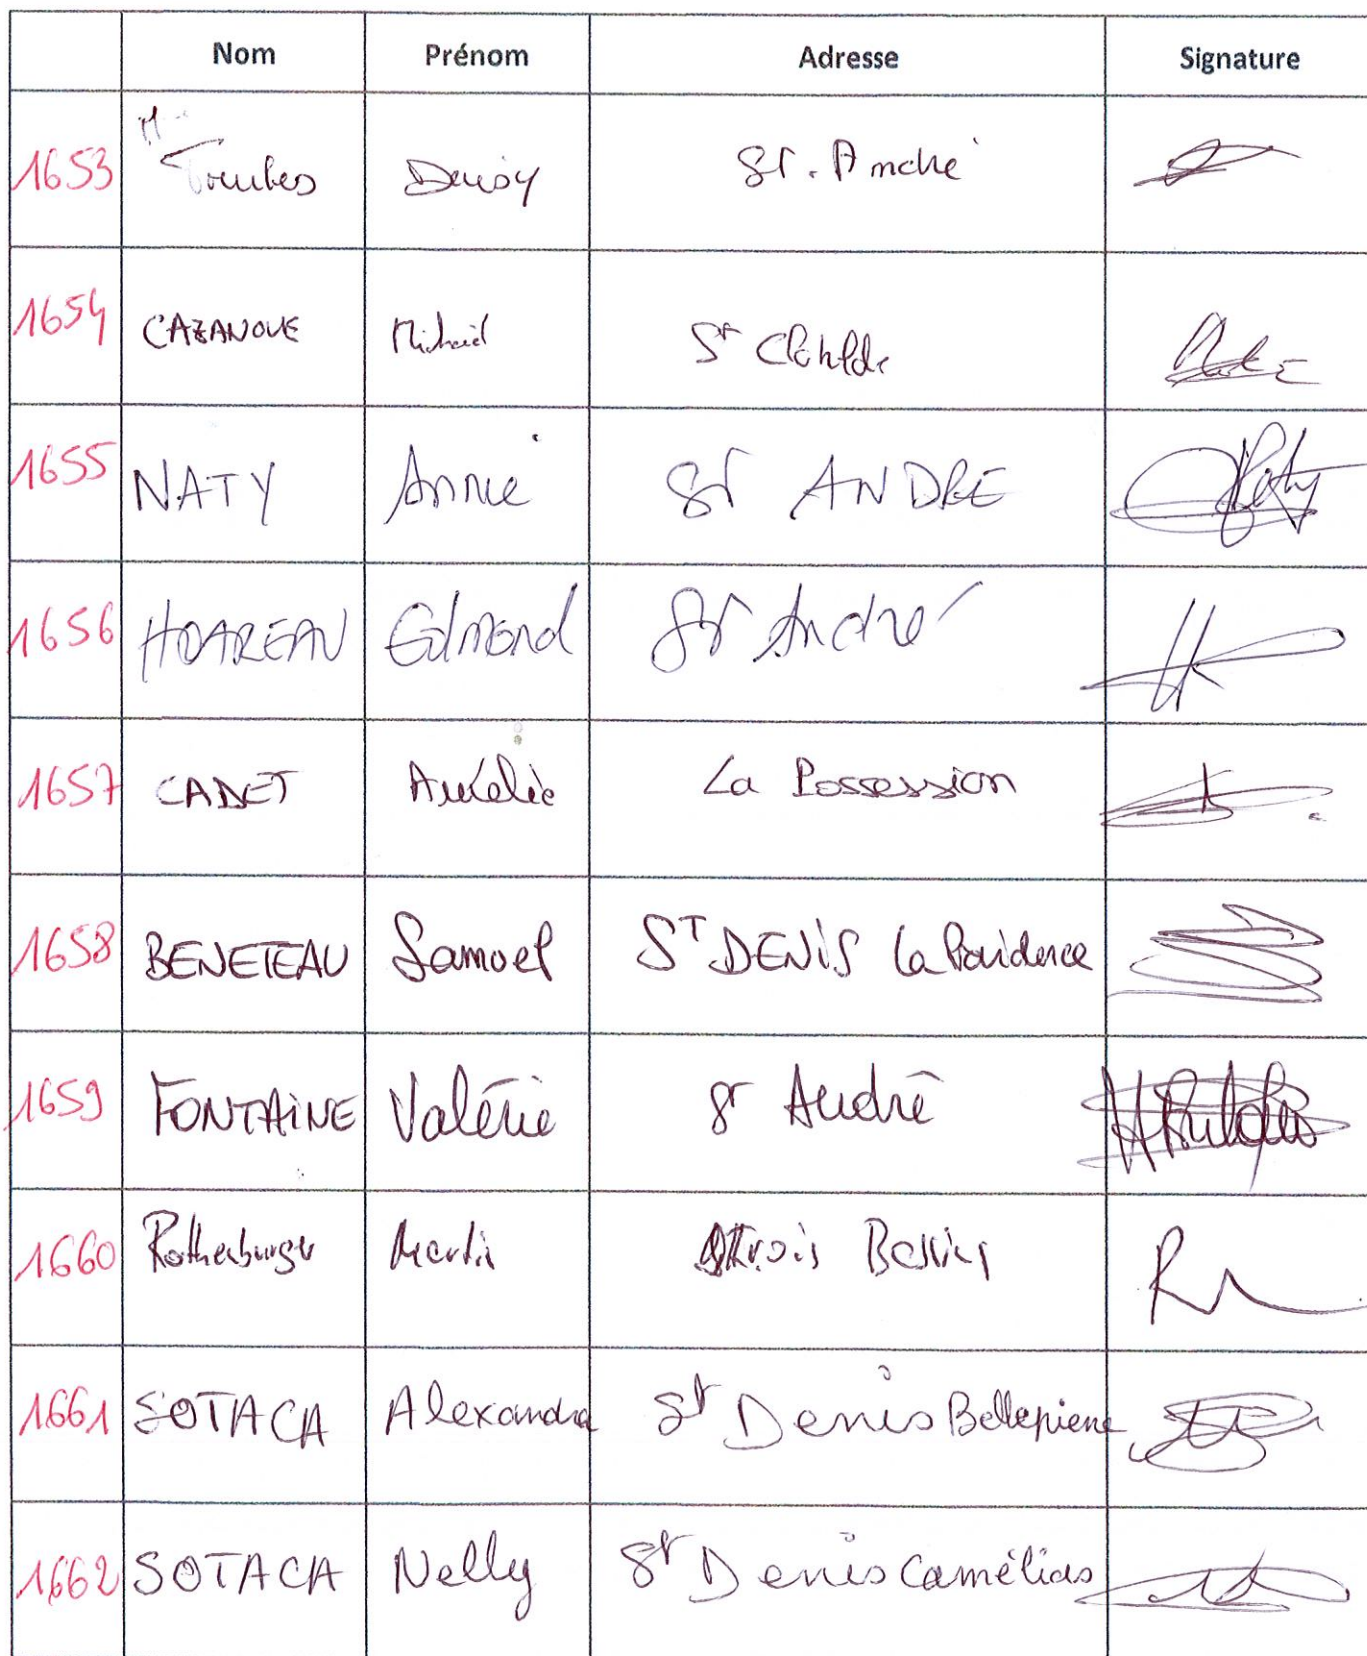 Nom Prénom Adresse Signature
1653 Daisy St. André
1654 CAZANOVE Michaël St Clotilde
1655 NATY Annie St ANDRE
1656 HOAREAU Edmond St André
1657 CADET Aurélie La Possession
1658 BENETEAU Samuel ST DENIS la Providence
1659 FONTAINE Valérie St André
1660 Rothenburger Martin Trois Bassins
1661 SOTACA Alexandra St Denis Bellepierre
1662 SOTACA Nelly St Denis Camélias